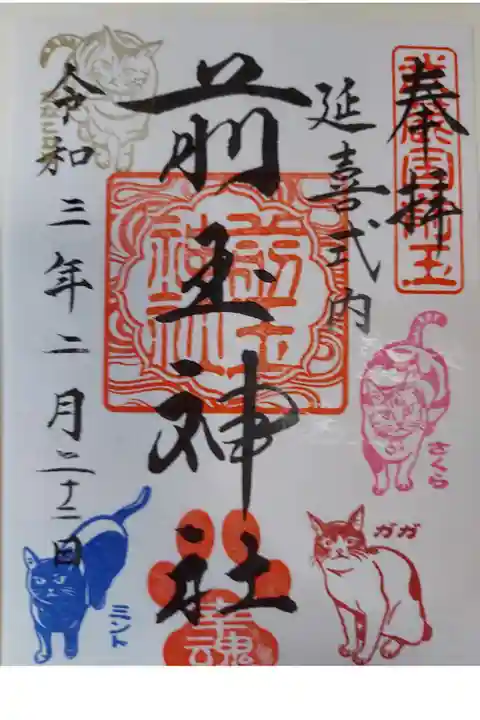 奉拝
延喜式内
前玉神社
前玉神社
令和三年二月二十二日
さくら
ガガ
ミント
幸魂